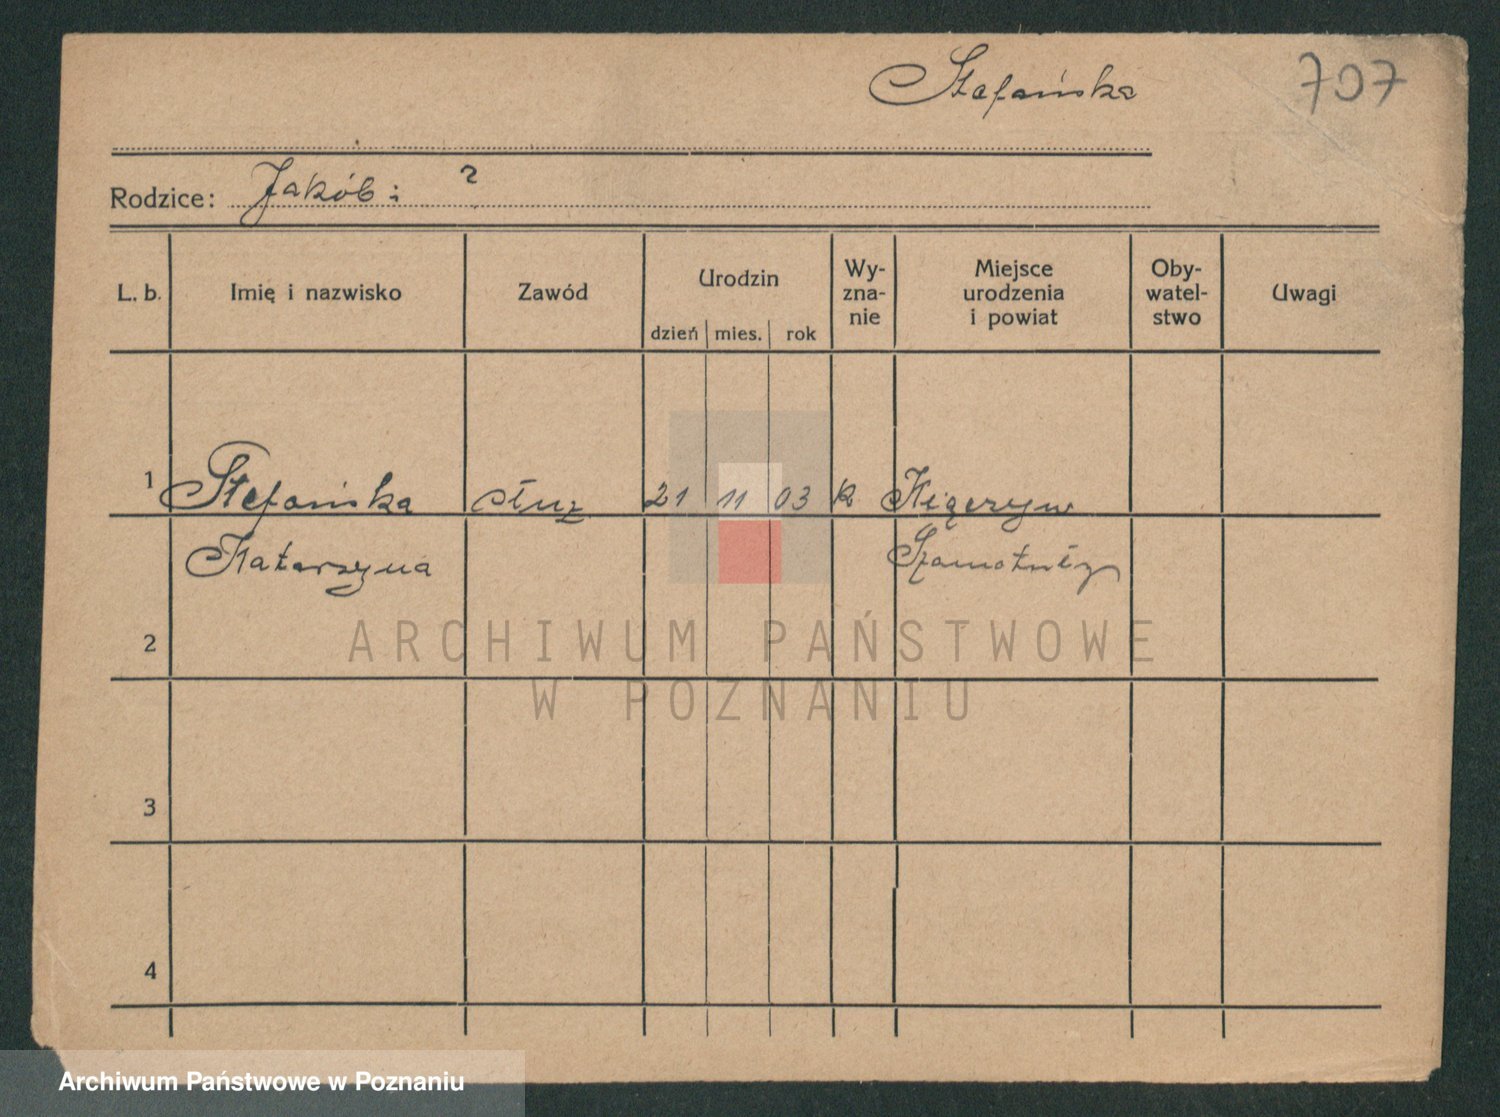 Stefańska
707
Rodzice: Jakób i ?
L. b.
Imię i nazwisko
Zawód
Urodzin
dzień mies. rok
Wy-
zna-
nie
Miejsce
urodzenia
i powiat
Oby-
watel-
stwo
Uwagi
1 Stefańska służ 21 11 03 k
Katarzyna
2
3
4
ARCHIWUM PAŃSTWOWE
W POZNANIU
Archiwum Państwowe w Poznaniu